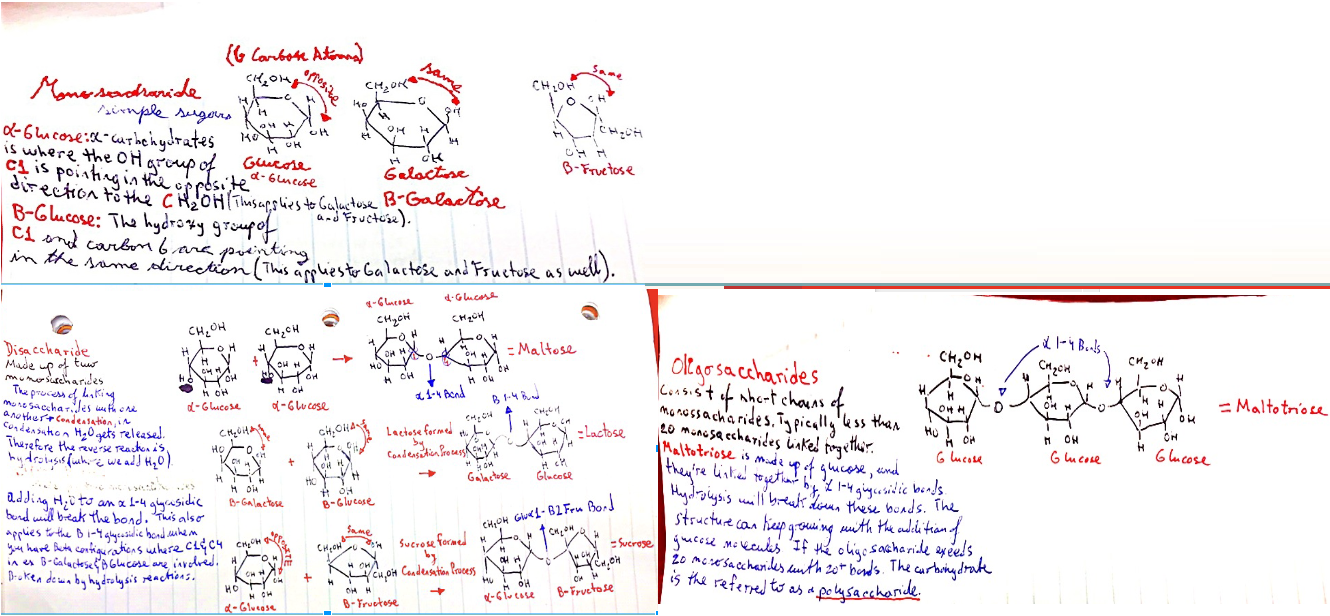 (6 Carbose Atoms)
Monosacharide
simple sugars
α-Glucose: α-carbohydrates
is where the OH group of
C1 is pointing in the opposite
direction to the CH₂OH (This applies to Galactose
and Fructose).
B-Glucose: The hydroxy group of
C1 and carbon 6 are pointing
in the same direction (This applies to Galactose and Fructose as well).
CH₂OH
opposite
Glucose
α-Glucose
CH₂OH
same
Galactose
B-Galactose
CH₂OH
same
OH
CH₂OH
B-Fructose
Disaccharide
Made up of two
monosaccharides
The process of linking
monosaccharides with one
another → Condensation, in
condensation H₂O gets released.
Therefore the reverse reaction is
hydrolysis (where we add H₂O).
adding H₂O to an α 1-4 glycusidic
bond will break the bond. This also
applies to the B 1-4 glycosidic bond when
you have Beta configurations where C1 & C4
in ex B-Galactose & B Glucose are involved.
Broken down by hydrolysis reactions.
CH₂OH
α-Glucose
+
CH₂OH
α-Glucose
α-Glucose
α-Glucose
CH₂OH
CH₂OH
O
= Maltose
α 1-4 Bond
CH₂OH
B-Galactose
+
CH₂OH
B-Glucose
Lactose formed
by
Condensation Process
B 1-4 Bond
CH₂OH
Galactose
Glucose
= Lactose
CH₂OH
opposite
α-Glucose
+
same
CH₂OH
CH₂OH
B-Fructose
Sucrose formed
by
Condensation Process
CH₂OH
Glu α1-B2 Fru Bond
CH₂OH
α-Glucose
B-Fructose
= Sucrose
Oligosaccharides
Consist of short chains of
monossacharides. Typically less than
20 monosaccharides linked together.
Maltotriose is made up of glucose, and
they're linked together by α 1-4 glycusidic bonds
Hydrolysis will break down these bonds. The
structure can keep growing with the addition of
glucose molecules. If the oligosaccharide exeeds
20 monosaccharides with 20+ bonds. The carbohydrate
is the referred to as a polysaccharide.
α 1-4 Bonds
CH₂OH
CH₂OH
CH₂OH
O
O
Glucose
Glucose
Glucose
= Maltotriose